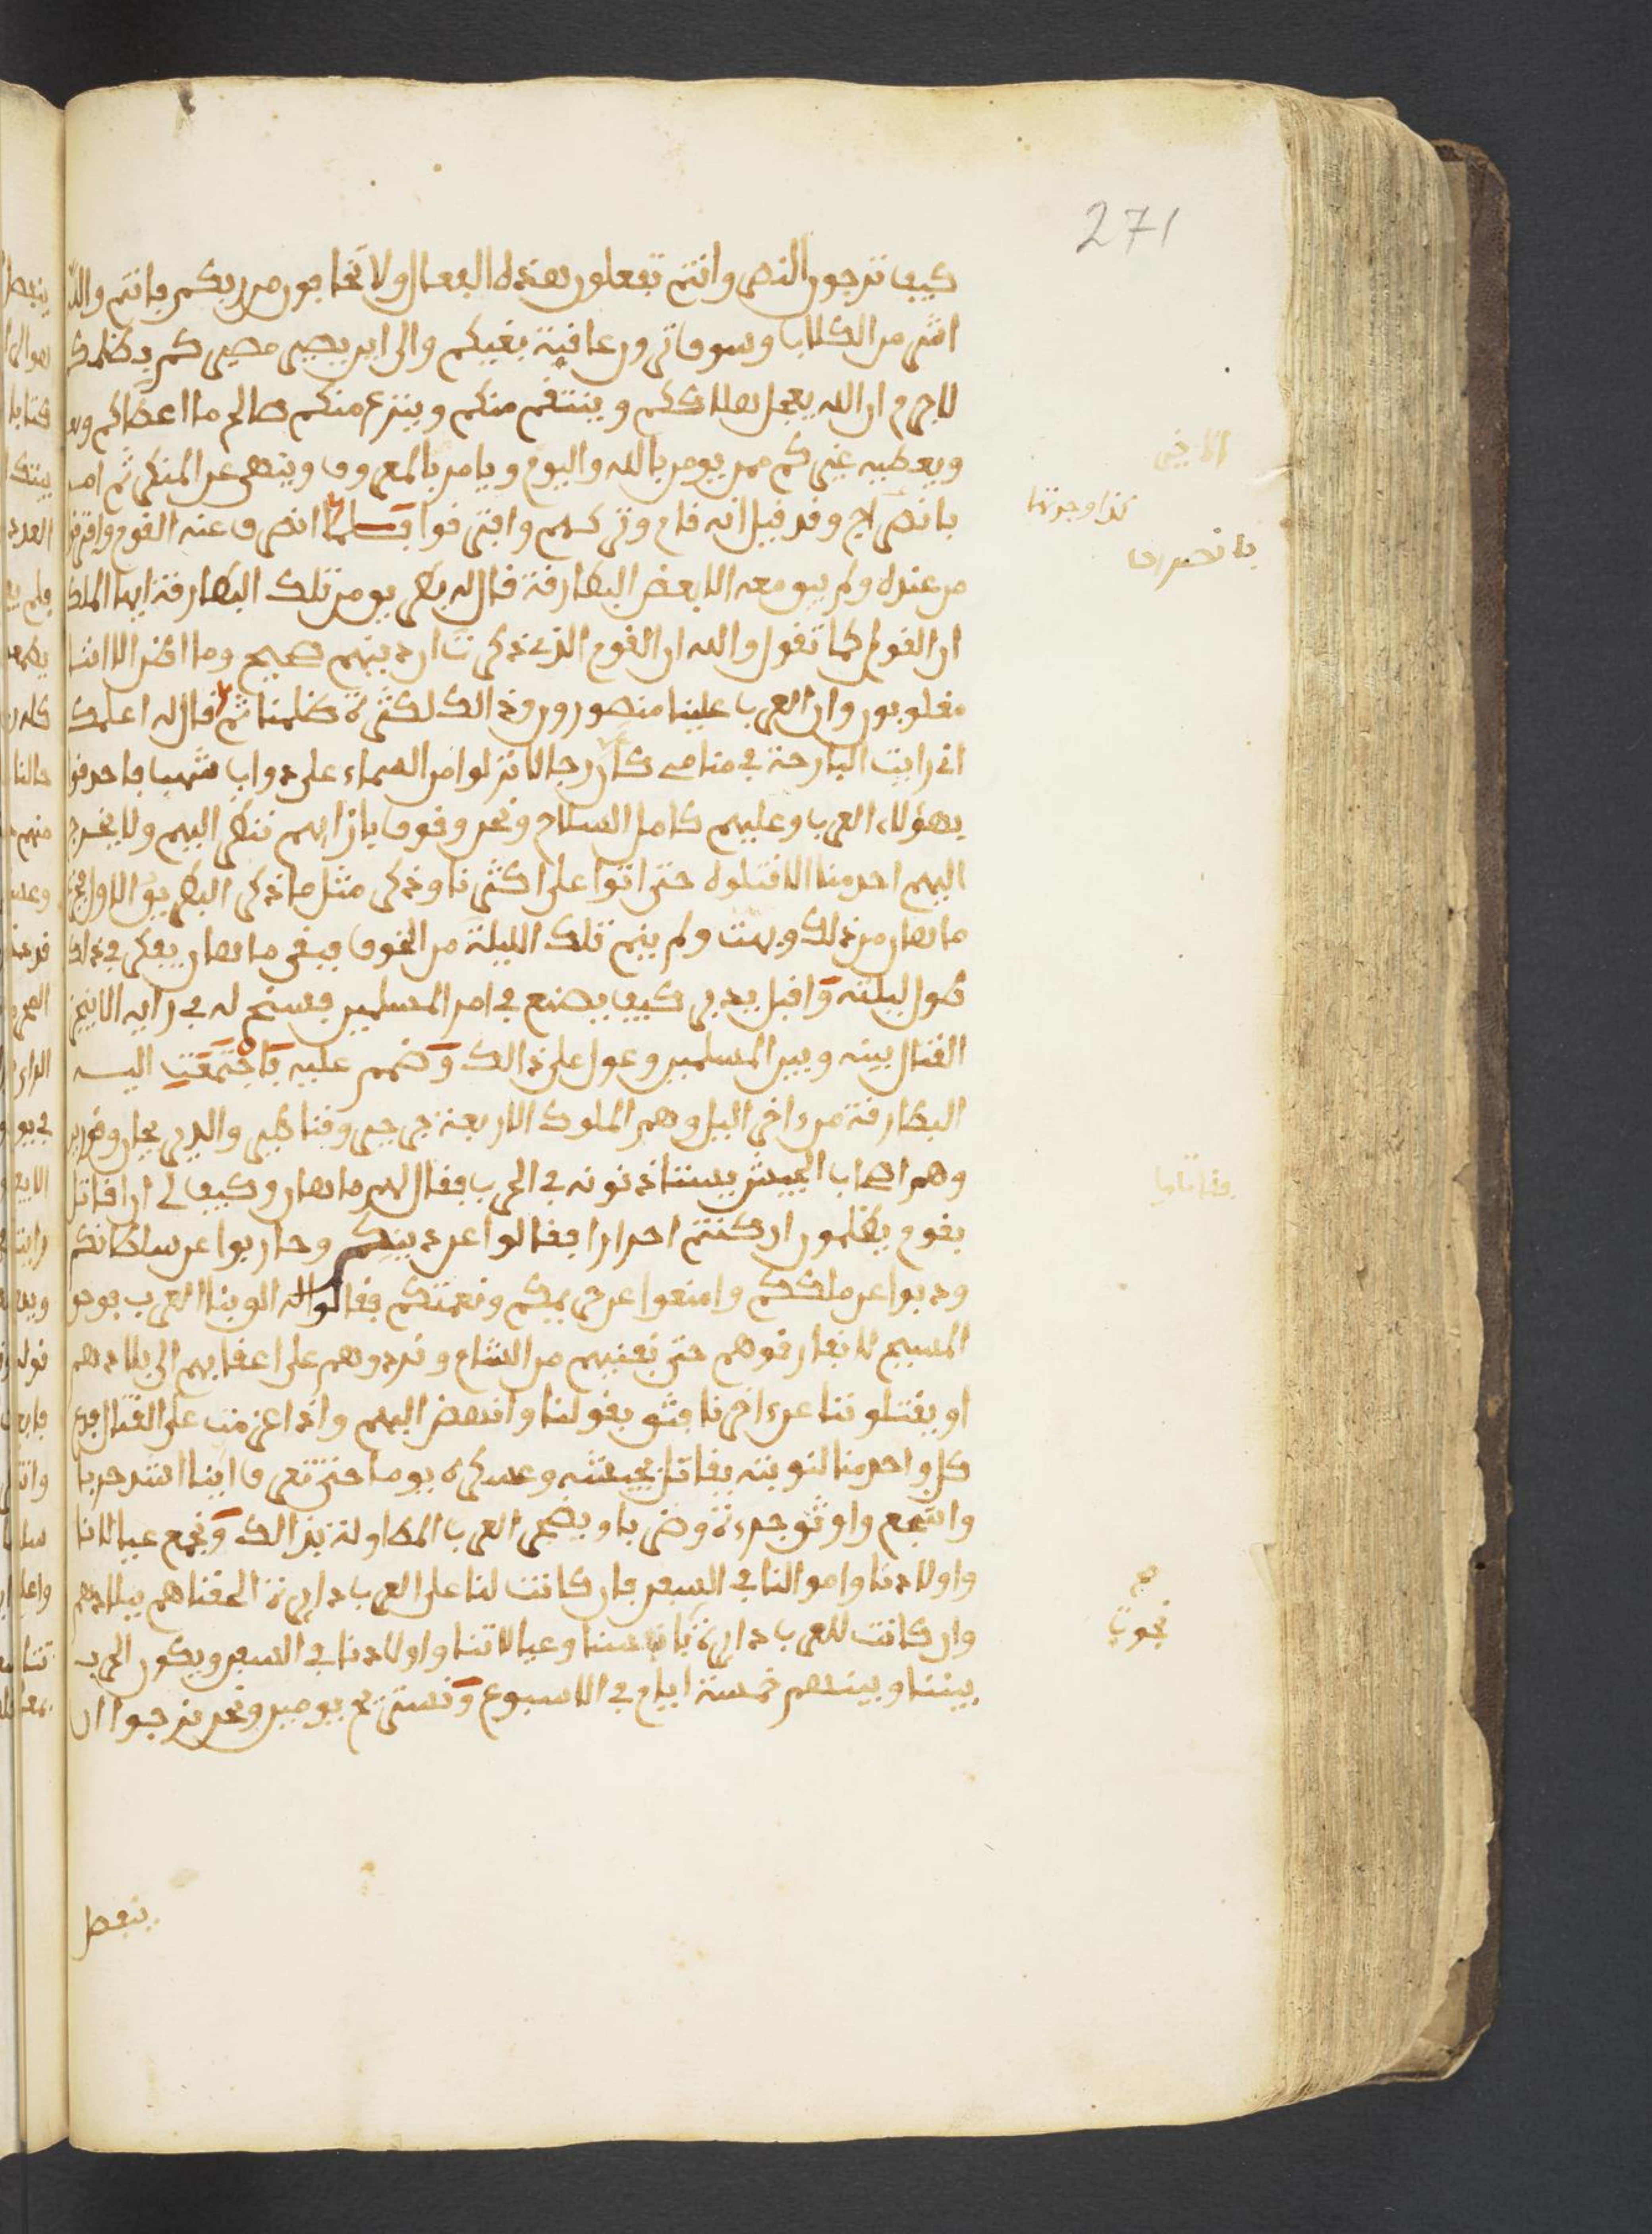 271
كيف ترجون النصر وانتم تفعلون هذه الفعال ولا تخافون من ربكم فانتم والله
اشر من الكلاب وسوف ترون عاقبة بغيكم والى اين يصير مصيركم بظلمكم
لا جرم ان الله يعجل هلاككم وينتقم منكم وينزع منكم صالح ما اعطاكم
ويعطيه غيركم ممن يومن بالله واليوم ويامر بالمعروف وينهى عن المنكر ثم امر
الاخر
بانصراج وقد قيل انه قام وتركهم وافترقوا فلما انصرف عنه القوم وافترقوا
كذا وجدتا
بانصراف
من عنده ولم يبق معه الا بعض البطارقة قال له بطريق من تلك البطارقة ايها الملك
ان القول كما تقول والله ان القوم الذي ذكرت ان دينهم صحيح وما اظن الا اننا
مغلوبون وان العرب علينا منصورون وذالك لكثرة ظلمنا ثم قال له اعلمك
اني رايت البارحة في منامي كان رجالا نزلوا من السماء على دواب شهب فاحدقوا
بهؤلاء العرب وعليهم كامل السلاح ونحن وقوف بازايهم ننظر اليهم ولا يخرج
اليهم احد منا الا قتلوه حتى اتوا على اكثرنا وذكر مثل ما ذكر البطريق الاول
ماهان من ذلك وبهت ولم ينم تلك الليلة من الخوف فبقي ماهان يفكر في ذلك
طول ليلته واقبل يدبر كيف يصنع في امر المسلمين فسنح له في رايه الا
القتال بينه وبين المسلمين وعول على ذالك وصمم عليه فاجتمعت اليه
البطارقة من داخر اليل وهم الملوك الاربعة جرجير وقناطير والديرجان وقورين
وهم اصحاب الجيش يستاذنونه في الحرب فقال لهم ماهان وكيف لي ان اقاتل
بقوم يظلمون ان كنتم احرارا فقاتلوا عن دينكم وحاربوا عن سلطانكم
فقاتلوا
وذبوا عن ملككم وامنعوا عن حريمكم ونعمتكم فقالوا له القو بنا العرب فوحق
المسيح لا نفارقوهم حتى نفنيهم من الشام ونردوهم على اعقابهم الى بلادهم
او يقتلوننا عن داخرنا فثق بقولنا وانهض اليهم واذا عزمت على القتال فدع
كل واحد منا لنوبته يقاتل بجيشه وعسكره يوما حتى تعرف اينا اشد حربا
واشجع واوثق جردة وضربا ويضجر العرب المطاولة بذالك ونجمع عيالاتنا
واولادنا واموالنا في السفن فان كانت لنا على العرب دايرة الحقناهم ببلادهم
وان كانت للعرب دايرة بانفسنا وعيالاتنا واولادنا في السفن ويكون الحرب
نجوت
بيننا وبينهم خمسة ايام في الاسبوع ونستريح يومين ونحن نرجوا ان
ينفصل